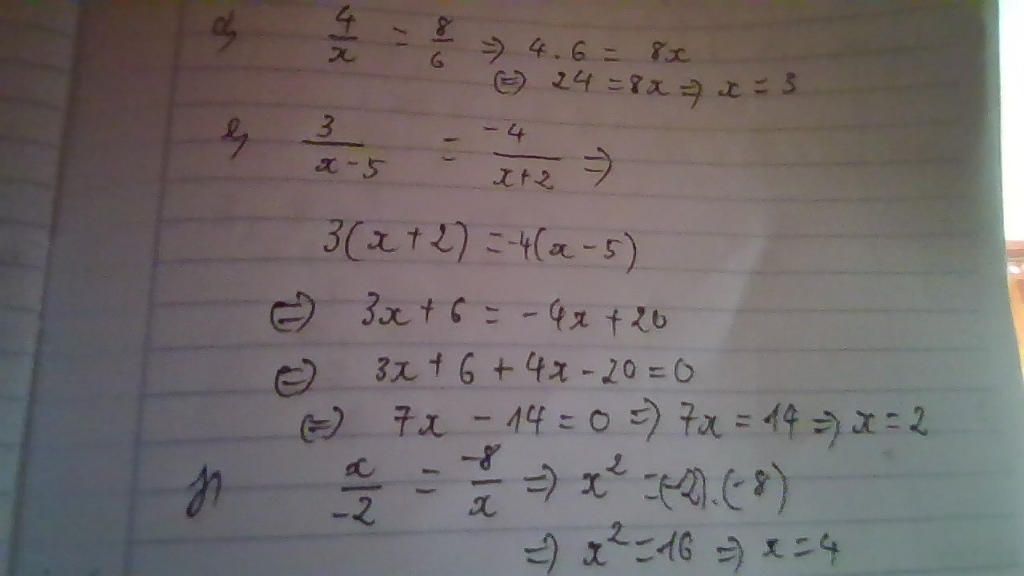 d) 4/x = 8/6 => 4.6 = 8x
(=) 24 = 8x => x = 3
e) 3/(x-5) = -4/(x+2) =>
3(x+2) = -4(x-5)
(=) 3x+6 = -4x+20
(=) 3x+6+4x-20=0
(=) 7x-14=0 => 7x=14 => x=2
x/-2 = -8/x => x² = (-2).(-8)
=> x²=16 => x=4